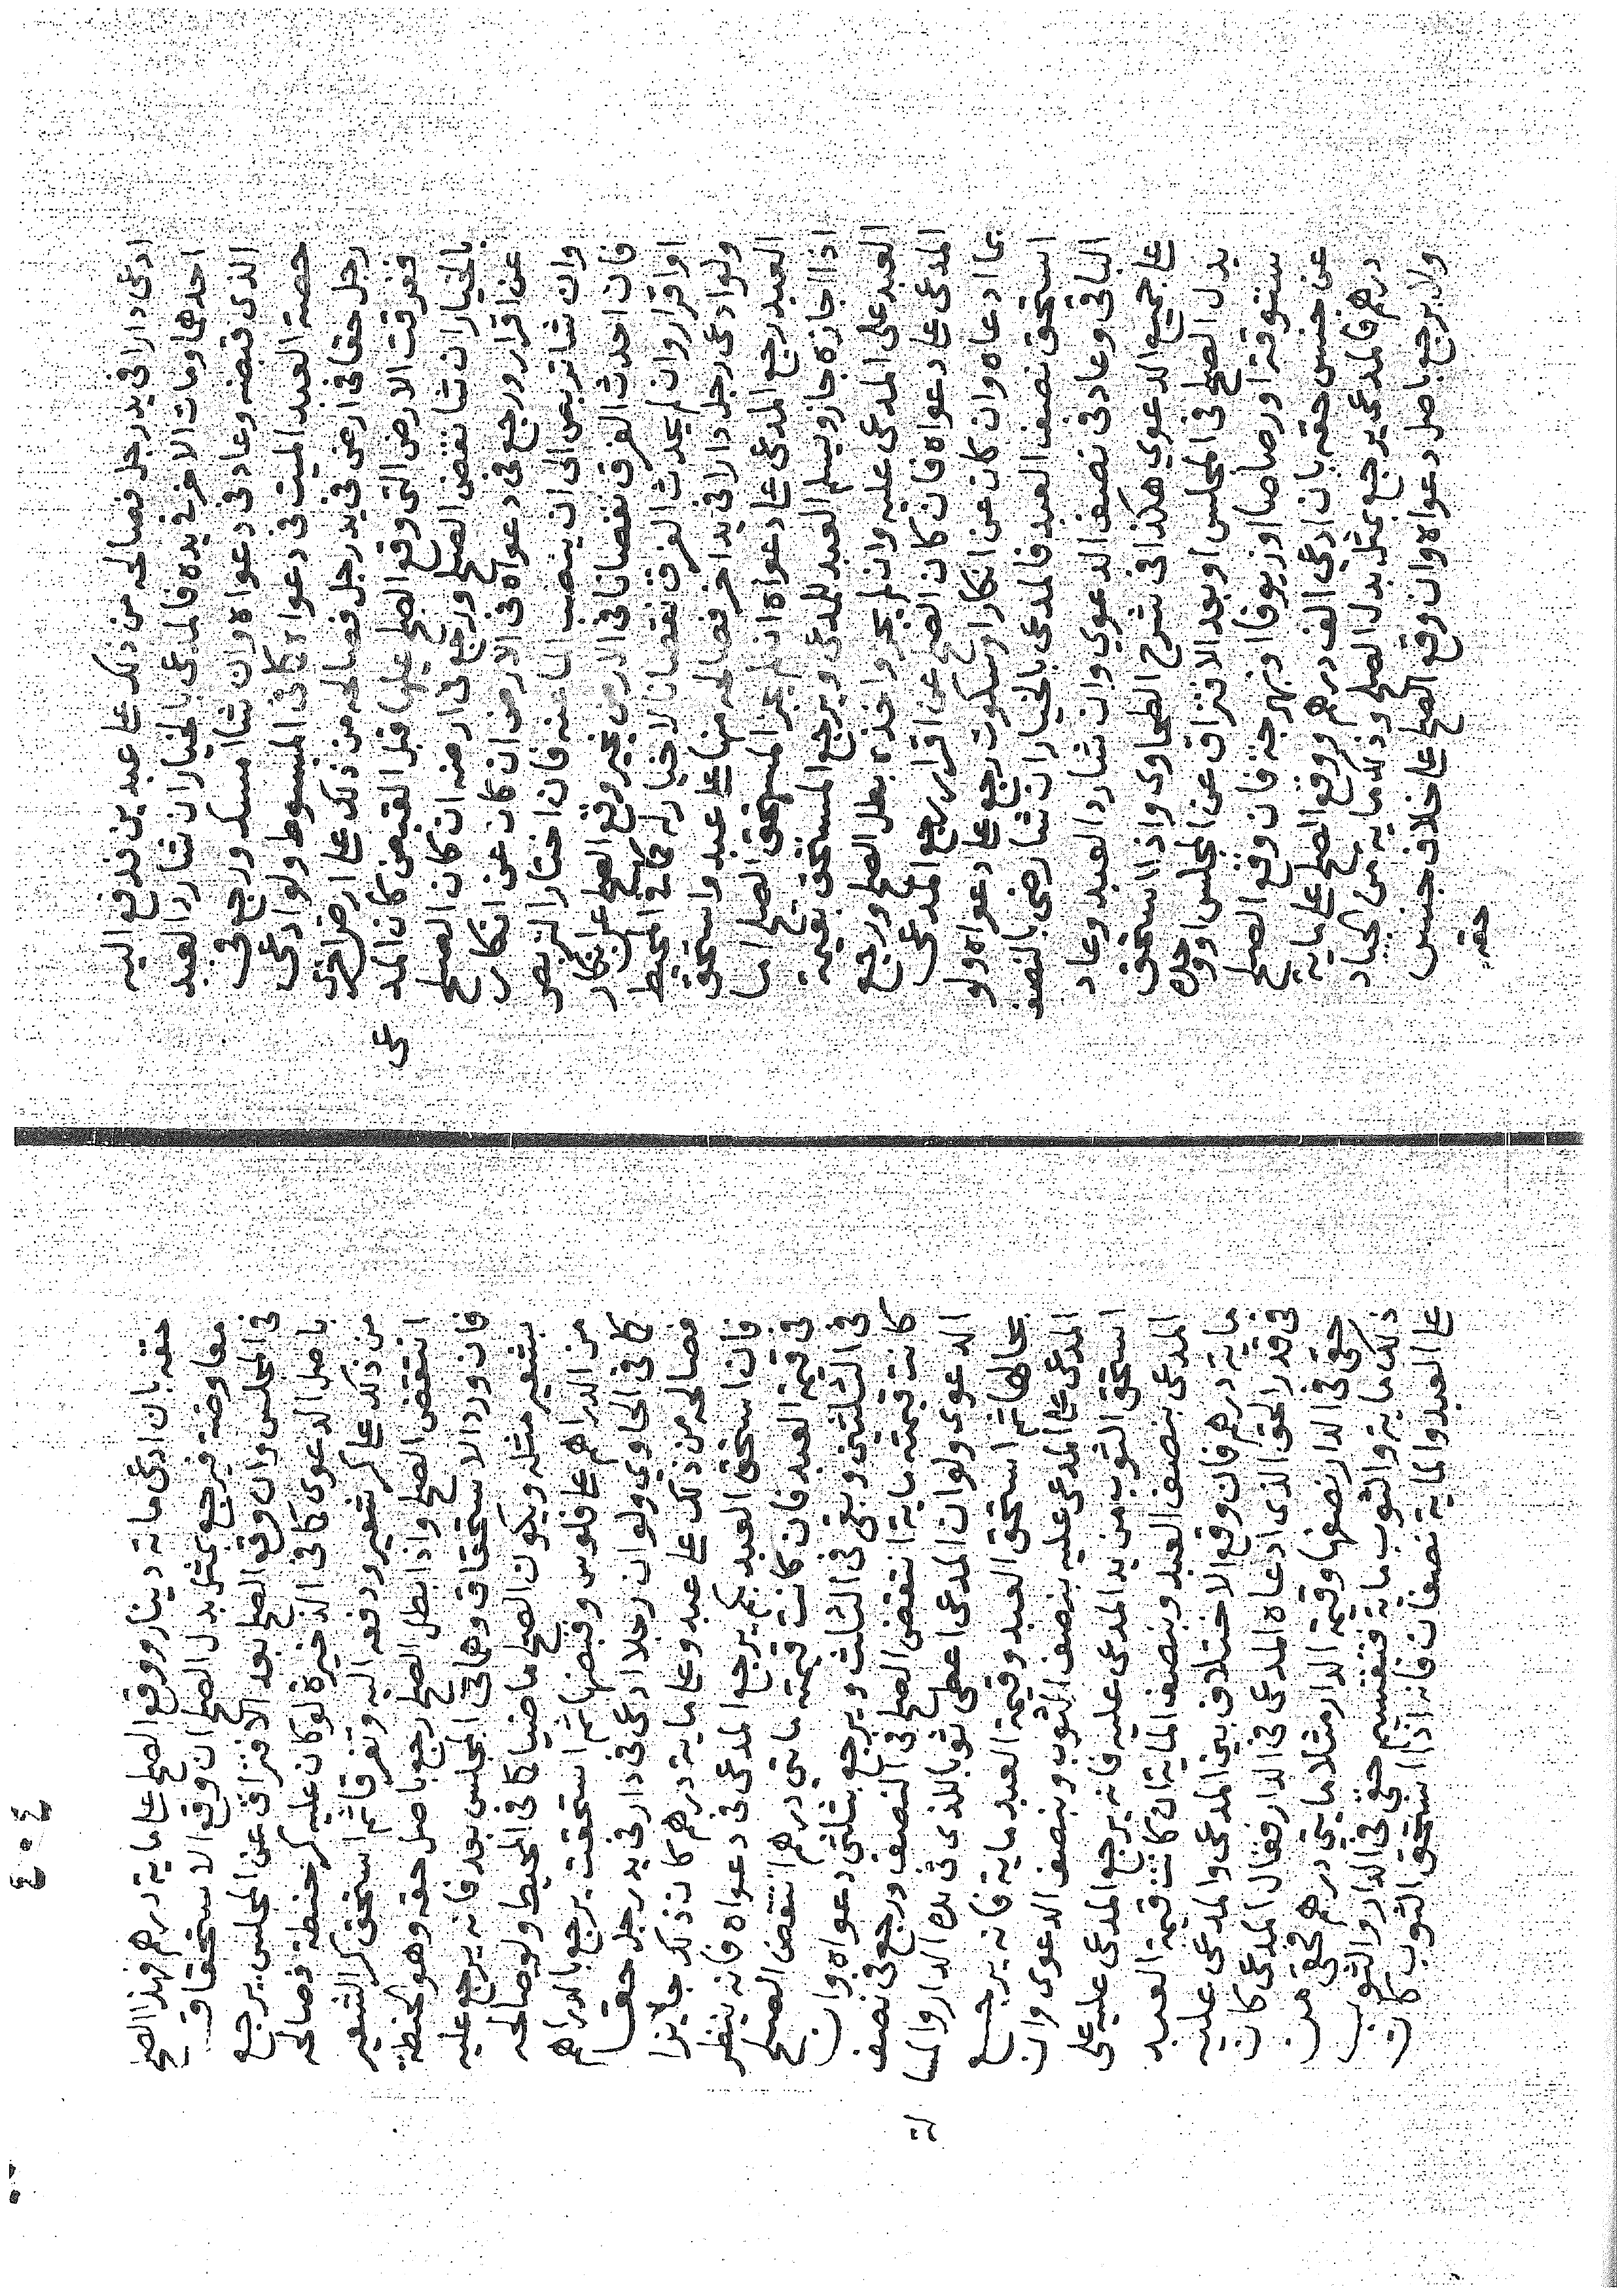 ادعى دارا في يد رجل فصالحه من ذلك على عبدين فدفع اليه
احدهما ومات الاخر في يده فالمدعى بالخيار ان شا رد العبد
الذى قبضه وعاد فى دعواه وان شا امسكه ورجع في
حصة العبد الميت فى دعواه كما فى المبسوط ولو ادعى
رجل حقا فى ارض فى يد رجل فصالحه من ذلك على ارض اخرى
فغرقت الارض التى وقع الصلح عليها قبل القبض كان المدعى
بالخيار ان شا نقض الصلح ورجع فى ارضه ان كان الصلح
عن اقرار ورجع فى دعواه فى الارض ان كان عن انكار
وان شا تربص الى ان ينضب الما عنه فان اختار التربص
فان احدث الغرق نقصانا فى الارض يخير وقع الصلح عن انكار
او اقرار وان لم يحدث الغرق نقصانا لا خيار له كما فى المحيط
ولو ادعى رجل دارا فى يد اخر فصالحه منها على عبد واستحق
العبد رجع المدعى على دعواه ان لم يجز المستحق الصلح اما
اذا اجازه جاز ويسلم العبد للمدعى ويرجع المستحق بقيمة
العبد على المدعى عليه وان لم يجز واخذه بطل الصلح ورجع
المدعى على دعواه فان كان الصلح عن اقرار رجع المدعى
بما ادعاه وان كان عن انكار او سكوت رجع على دعواه ولو
استحق نصف العبد فالمدعى بالخيار ان شا رضى بالنصف
الباقى وعاد فى نصف الدعوي وان شا رد العبد وعاد
على جميع الدعوي هكذا فى شرح الطحاوى واذا استحق
بدل الصلح فى المجلس او بعد الافتراق عن المجلس او وجده
ستوقة او رصاصا او زيوفا او نبهرجة فان وقع الصلح
عن جنس حقه بان ادعى الف درهم ووقع الصلح على ماية
درهم فالمدعى يرجع بمثل بدل الصلح وذلك ماية من الجياد
ولا يرجع باصل دعواه وان وقع الصلح على خلاف جنس
حقه
٤٠٤
حقه بان ادعى ماية دينار ووقع الصلح على ماية درهم فهذا الصلح
معاوضة فيرجع بمثل بدل الصلح ان وقع الاستحقاق
فى المجلس وان وقع الصلح بعد الافتراق عن المجلس يرجع
باصل الدعوى كما فى الذخيرة لو كان عليه كر حنطة فصالحه
من ذلك على كر شعير ودفعه اليه وتفرقا ثم استحق كر الشعير
انتقض الصلح واذا بطل الصلح رجع باصل حقه وهو الحنطة
فان ورد الاستحقاق وهما فى المجلس بعد فانه يرجع عليه
بشعير مثله ويكون الصلح ماضيا كما فى المحيط ولو صالحه
من الدراهم على فلوس وقبضها ثم استحقت يرجع بالدراهم
كما فى الحاوي ولو ان رجلا ادعى فى دار فى يد رجل حقا
فصالحه من ذلك على عبد وعلى ماية درهم كان ذلك جايزا
فان استحق العبد بكم يرجع المدعى فى دعواه فانه ينظر
فى قيمة العبد فان كانت قيمته مايتى درهم انتقض الصلح
فى الثلثين وبقى فى الثلث ويرجع بثلثى دعواه وان
كانت قيمته ماية انتقض الصلح فى النصف ورجع فى نصف
الدعوى ولو ان المدعى اعطى ثوبا للذى فى يده الدار والمسالة
بحالها ثم استحق العبد وقيمة العبد ماية فانه يرجع
المدعى على المدعى عليه بنصف الثوب وبنصف الدعوى وان
استحق الثوب من يد المدعى عليه فانه يرجع المدعى عليه على
المدعى بنصف العبد وبنصف الماية ان كانت قيمة العبد
ماية درهم فان وقع الاختلاف بين المدعى والمدعى عليه
فى قدر الحق الذى ادعاه المدعى فى الدار فقال المدعى كان
حقى فى الدار نصفها وقيمة الدار مثلا مايتى درهم فحقى من
ذلك ماية والثوب ماية فتقسم حقى فى الدار والثوب
على العبد والماية نصفان فانه اذا استحق الثوب كان